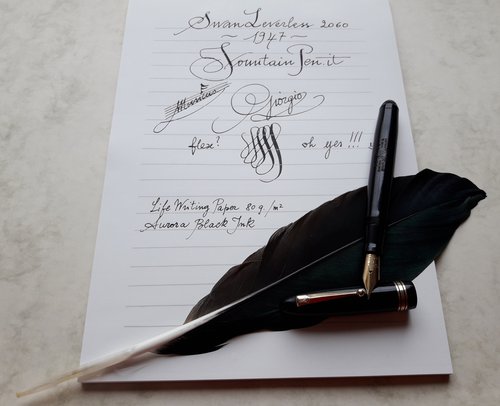 Swan Leverless 2060
~ 1947 ~
FountainPen.it
Musicus
Giorgio
flex? oh yes!!!
Life Writing Paper 80 g./m²
Aurora Black Ink